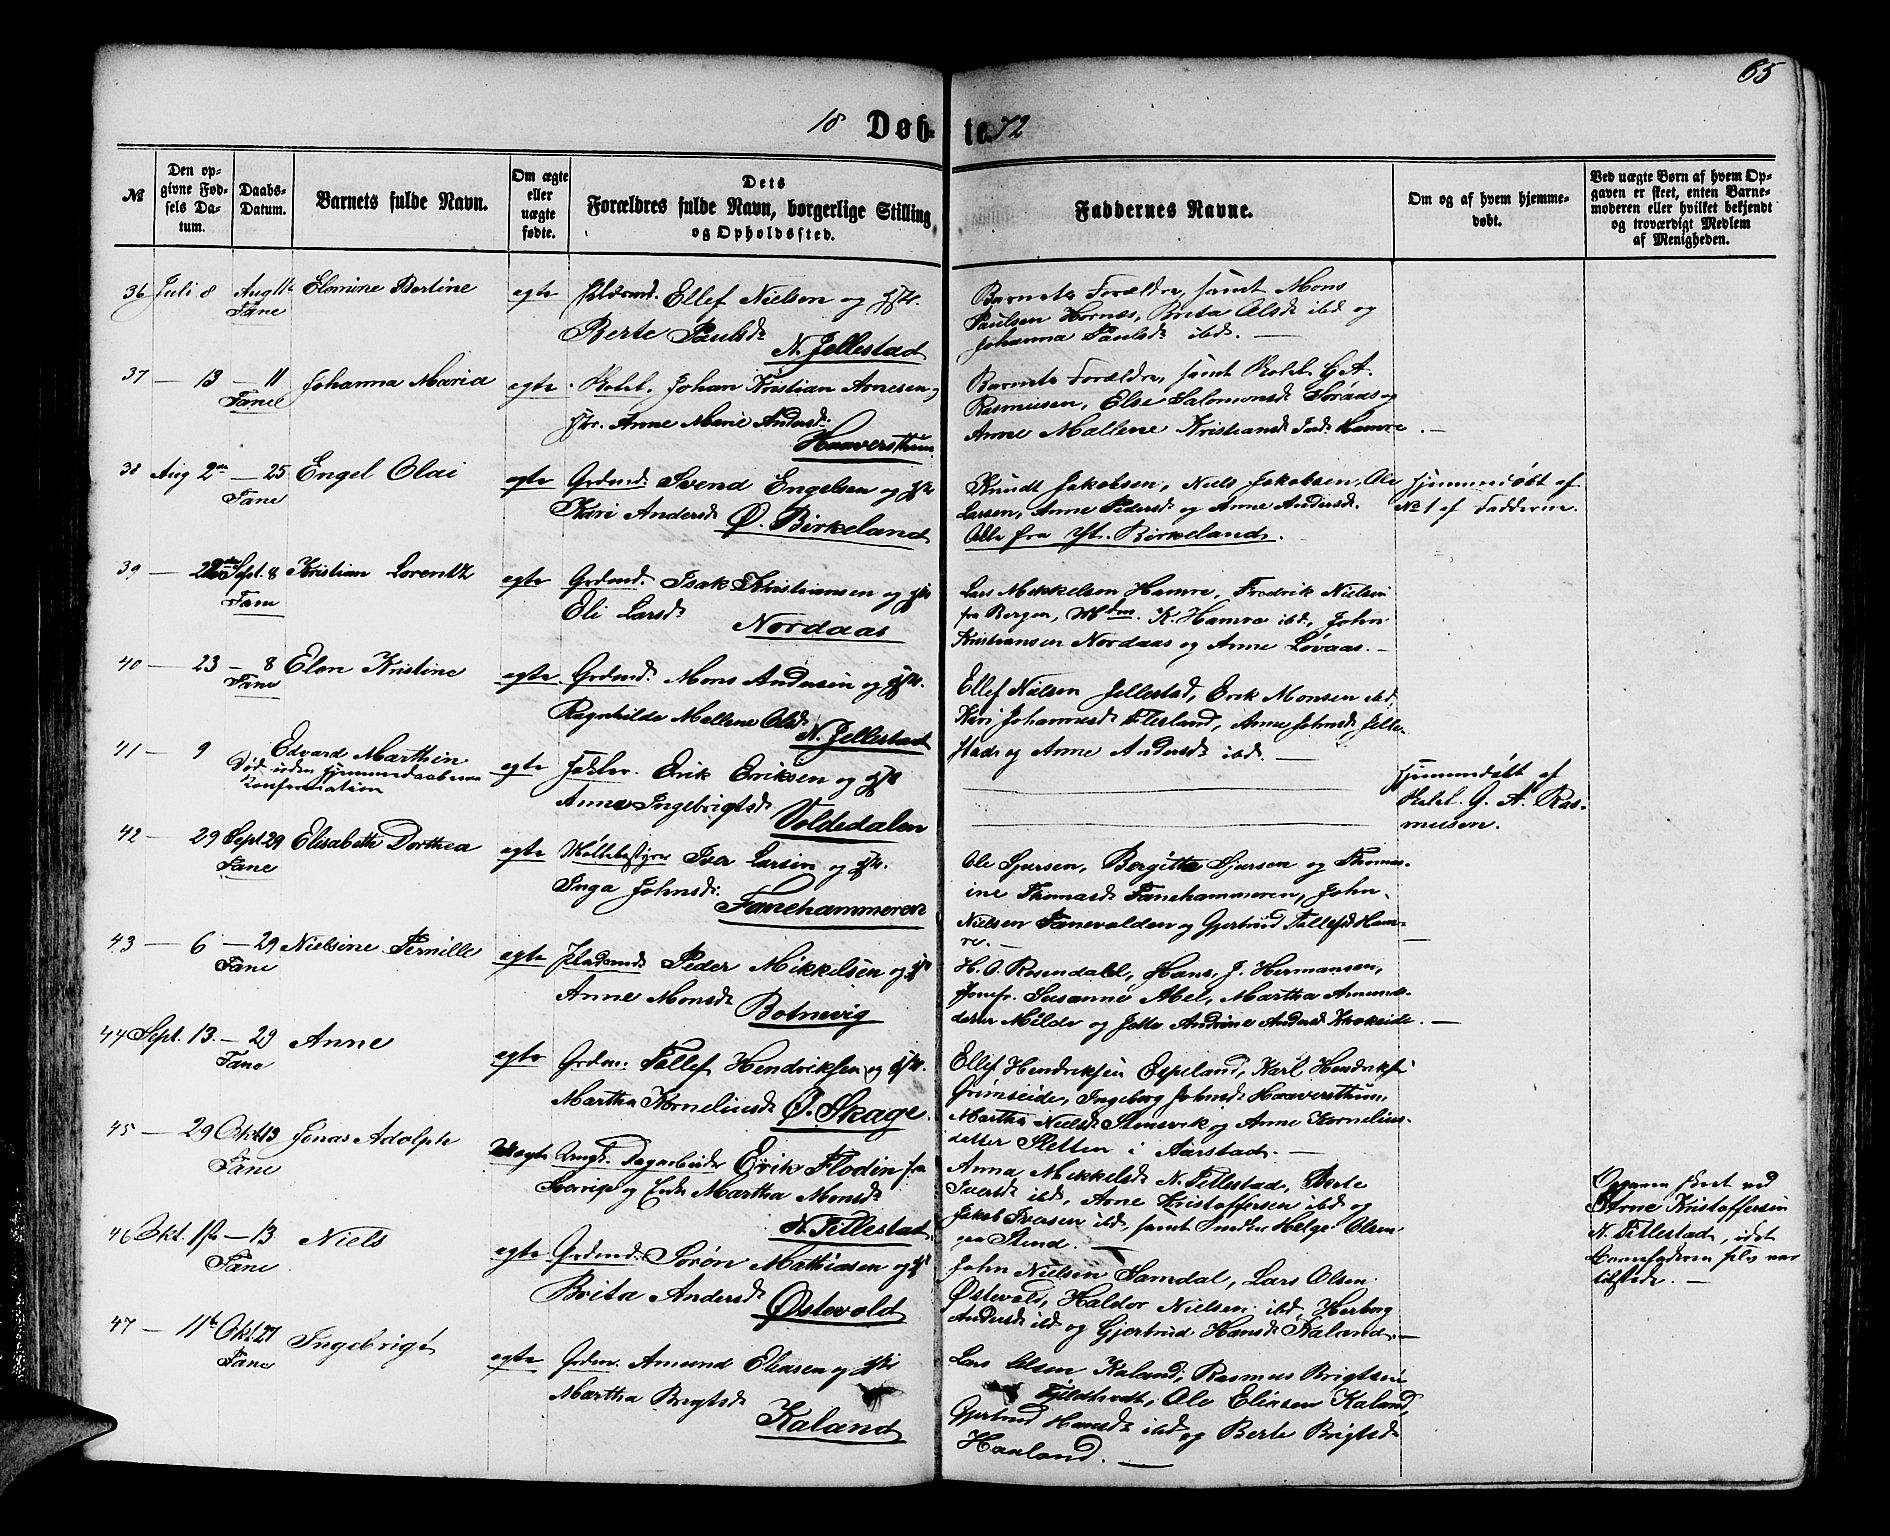 65
18 Døb-te. 72
№
Den op-
givne Fød-
sels Da-
tum.
Daabs-
Datum.
Barnets fulde Navn.
Om ægte
eller
uægte
fødte.
Dets
Forældres fulde Navn, borgerlige Stilling
og Opholdssted.
Faddernes Navne.
Om og af hvem hjemme-
døbt.
Ved uægte Børn af hvem Op-
gaven er skeet, enten Barne-
moderen eller hvilket bekjendt
og troværdigt Medlem
af Menigheden.
36 Juli 8 Aug 11te Elomine Bertine egte Pldsmd. Ellef Nielsen og Hst.
Fane
Berte Paulsd.
N. Jellestad
Barnets Forældre, samt Mons
Paulsen Hornæs, Brita Olsd. ibd og
Johanna Paulsd. ibd. —
37 — 13 — 11 Johanna Maria egte Johan Kristian Arnesen,
Fane
Anne Marie Andersd.
Haaversthun
Barnets Forældre, samt G. A.
Rasmusen, Else Salomonsd. Søraas og
Anne Mallene Kristiansd. Hamre. —
38 Aug 2den — 25 Engel Olai egte Grdmd. Svend Engelsen og Hst.
Fane
Kari Andersd. Ø. Birkeland
Knudt Jakobsen, Niels Jakobsen, Ole
Larsen, Anne Pedersd. og Anne Andersd.
Alle fra Birkeland.
Hjemmedøbt af
No 1 af Fadderne.
39 — Sept. 8 Kristian Lorentz egte Grdmd. Isak Kristiansen og Hst.
Fane
Eli Larsd.
Nordaas
Lars Mikkelsen Hamre, Fredrik Nielsen
fra Bergen, K. Hamre ibd, John
Kristiansen Nordaas og Anne Løvaas. —
40 — 23 — 8 Elen Kristine egte Grdmd. Mons Andersen og Hst.
Fane
Ragnhilde Mallene Olsd.
N. Jellestad
Ellef Nielsen Jellestad, Erik Monsen ibd,
Kari Johannesd. Flesland, Anne Johnsd. Jelle-
stad og Anne Andersd. ibd. —
41 — 9 Edvard Marthin egte Erik Eriksen og Hst.
Død uden Hjemmedaabens
Konfirmation
Anne Ingebrigtsd.
Voldedalen
Hjemmedøbt af
G. A. Ras-
musen.
42 — 29 Sept 29 Elisabeth Dorthea egte Møllebestyrer Iver Larsen og Hst.
Fane
Inga Johnsd.
Fanehammeren
Ole Sjursen, Bergitte Sjursen og Thomas-
ine Thomasd. Fanehammeren, John
Nielsen Fanevolden og Gjertrud Tollefsd. Ham-
re. —
43 — 6 — 29 Nielsine Pernille egte Pladsmd. Peder Mikkelsen og Hst.
Fane
Anne Monsd.
Botnevig
H. O. Rosendahl, Hans J. Hermansen,
Jomfr. Susanne Abel, Martha Amunds-
datter Milde og Andrine Andersd. Krokeide. —
44 Sept. 13. — 29 Anne egte Grdm. Tollef Hendriksen og Hst.
Fane
Martha Kornelinsd. Ø. Skage.
Ellef Hendriksen Espeland, Karl Hendriksen
Grimseide, Ingeborg Johnsd. Haaversthun,
Martha Nielsd. Stensvik og Anne Kornelius-
datter Sletten i Aarstad. —
45 — 29 Okt 13 Jonas Adolpte Uægte Ungk. Dagarbeider Erik Flodin fra
Fane
Sverrige og Enke Martha Monsd.
N. Titlestad
Anna Mikkelsd. N. Titlestad, Berte
Iversd. ibd, Arne Kristoffersen ibd og
Jakob Iversen ibd, samt Helge Olsen
paa Stend. —
Opgaven skeet ved
Arne Kristoffersen
N. Titlestad, idet
Barnefaderen selv var
tilstede. —
46 Okt. 1ste — 13 Niels egte Grdmd. Søren Mathiasen og Hst
Fane
Brita Andersd. Østevold
John Nielsen Samdal, Lars Olsen
Østevold, Haldor Nielsen ibd, Herborg
Andersd. ibd og Gjertrud Hansd. Kaland. —
47 — 11te Okt. 27 Ingebrigt egte Grdm. Amund Eliasen og Hst
Fane
Martha Brigtsd.
Kaland
Lars Olsen Kaland, Rasmus Brigtsen
Ole Eliasen Kaland,
Gjertrud Hansd. ibd og Berte Brigtsd.
Haaland. —